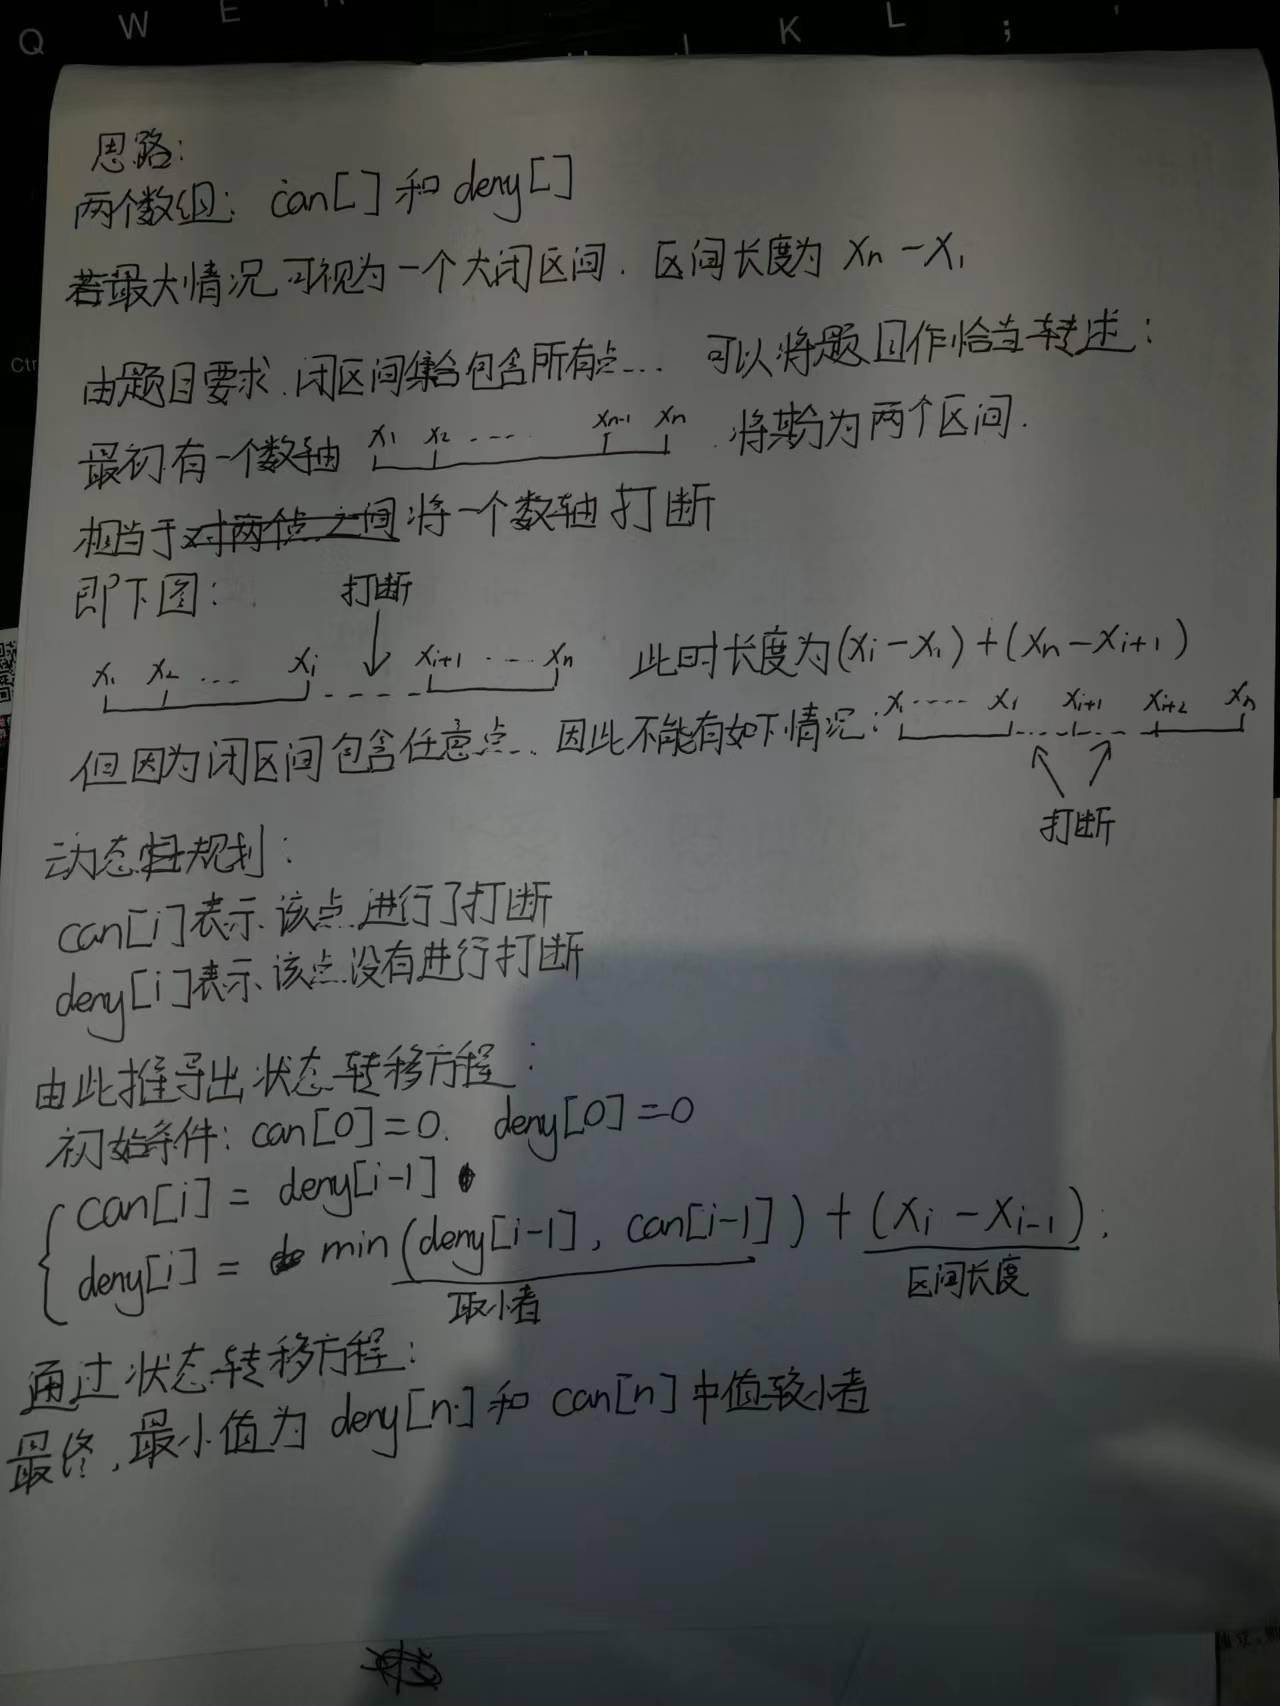 Q W E
K L ;
Ctr
思路:
两个数组: can[] 和 deny[]
若最大情况可视为一个大闭区间. 区间长度为 Xn - X1
由题目要求.闭区间集合包含所有点... 可以将题目作恰当转述:
最初有一个数轴 X1 X2 .... Xn-1 Xn . 将其分为两个区间.
相当于对两个点之间将一个数轴打断
即下图: 打断
X1 X2 ... Xi Xi+1 ... Xn 此时长度为(Xi-X1)+(Xn-Xi+1)
但因为闭区间包含任意点... 因此不能有如下情况: X1 .... Xi Xi+1 Xi+2 Xn
打断
动态规划:
can[i]表示该点进行了打断
deny[i]表示该点没有进行打断
由此推导出状态转移方程:
初始条件: can[0]=0. deny[0]=0
can[i] = deny[i-1]
deny[i] = min(deny[i-1], can[i-1]) + (Xi - Xi-1).
取小者 区间长度
通过状态转移方程:
最终,最小值为 deny[n]和 can[n]中值较小者